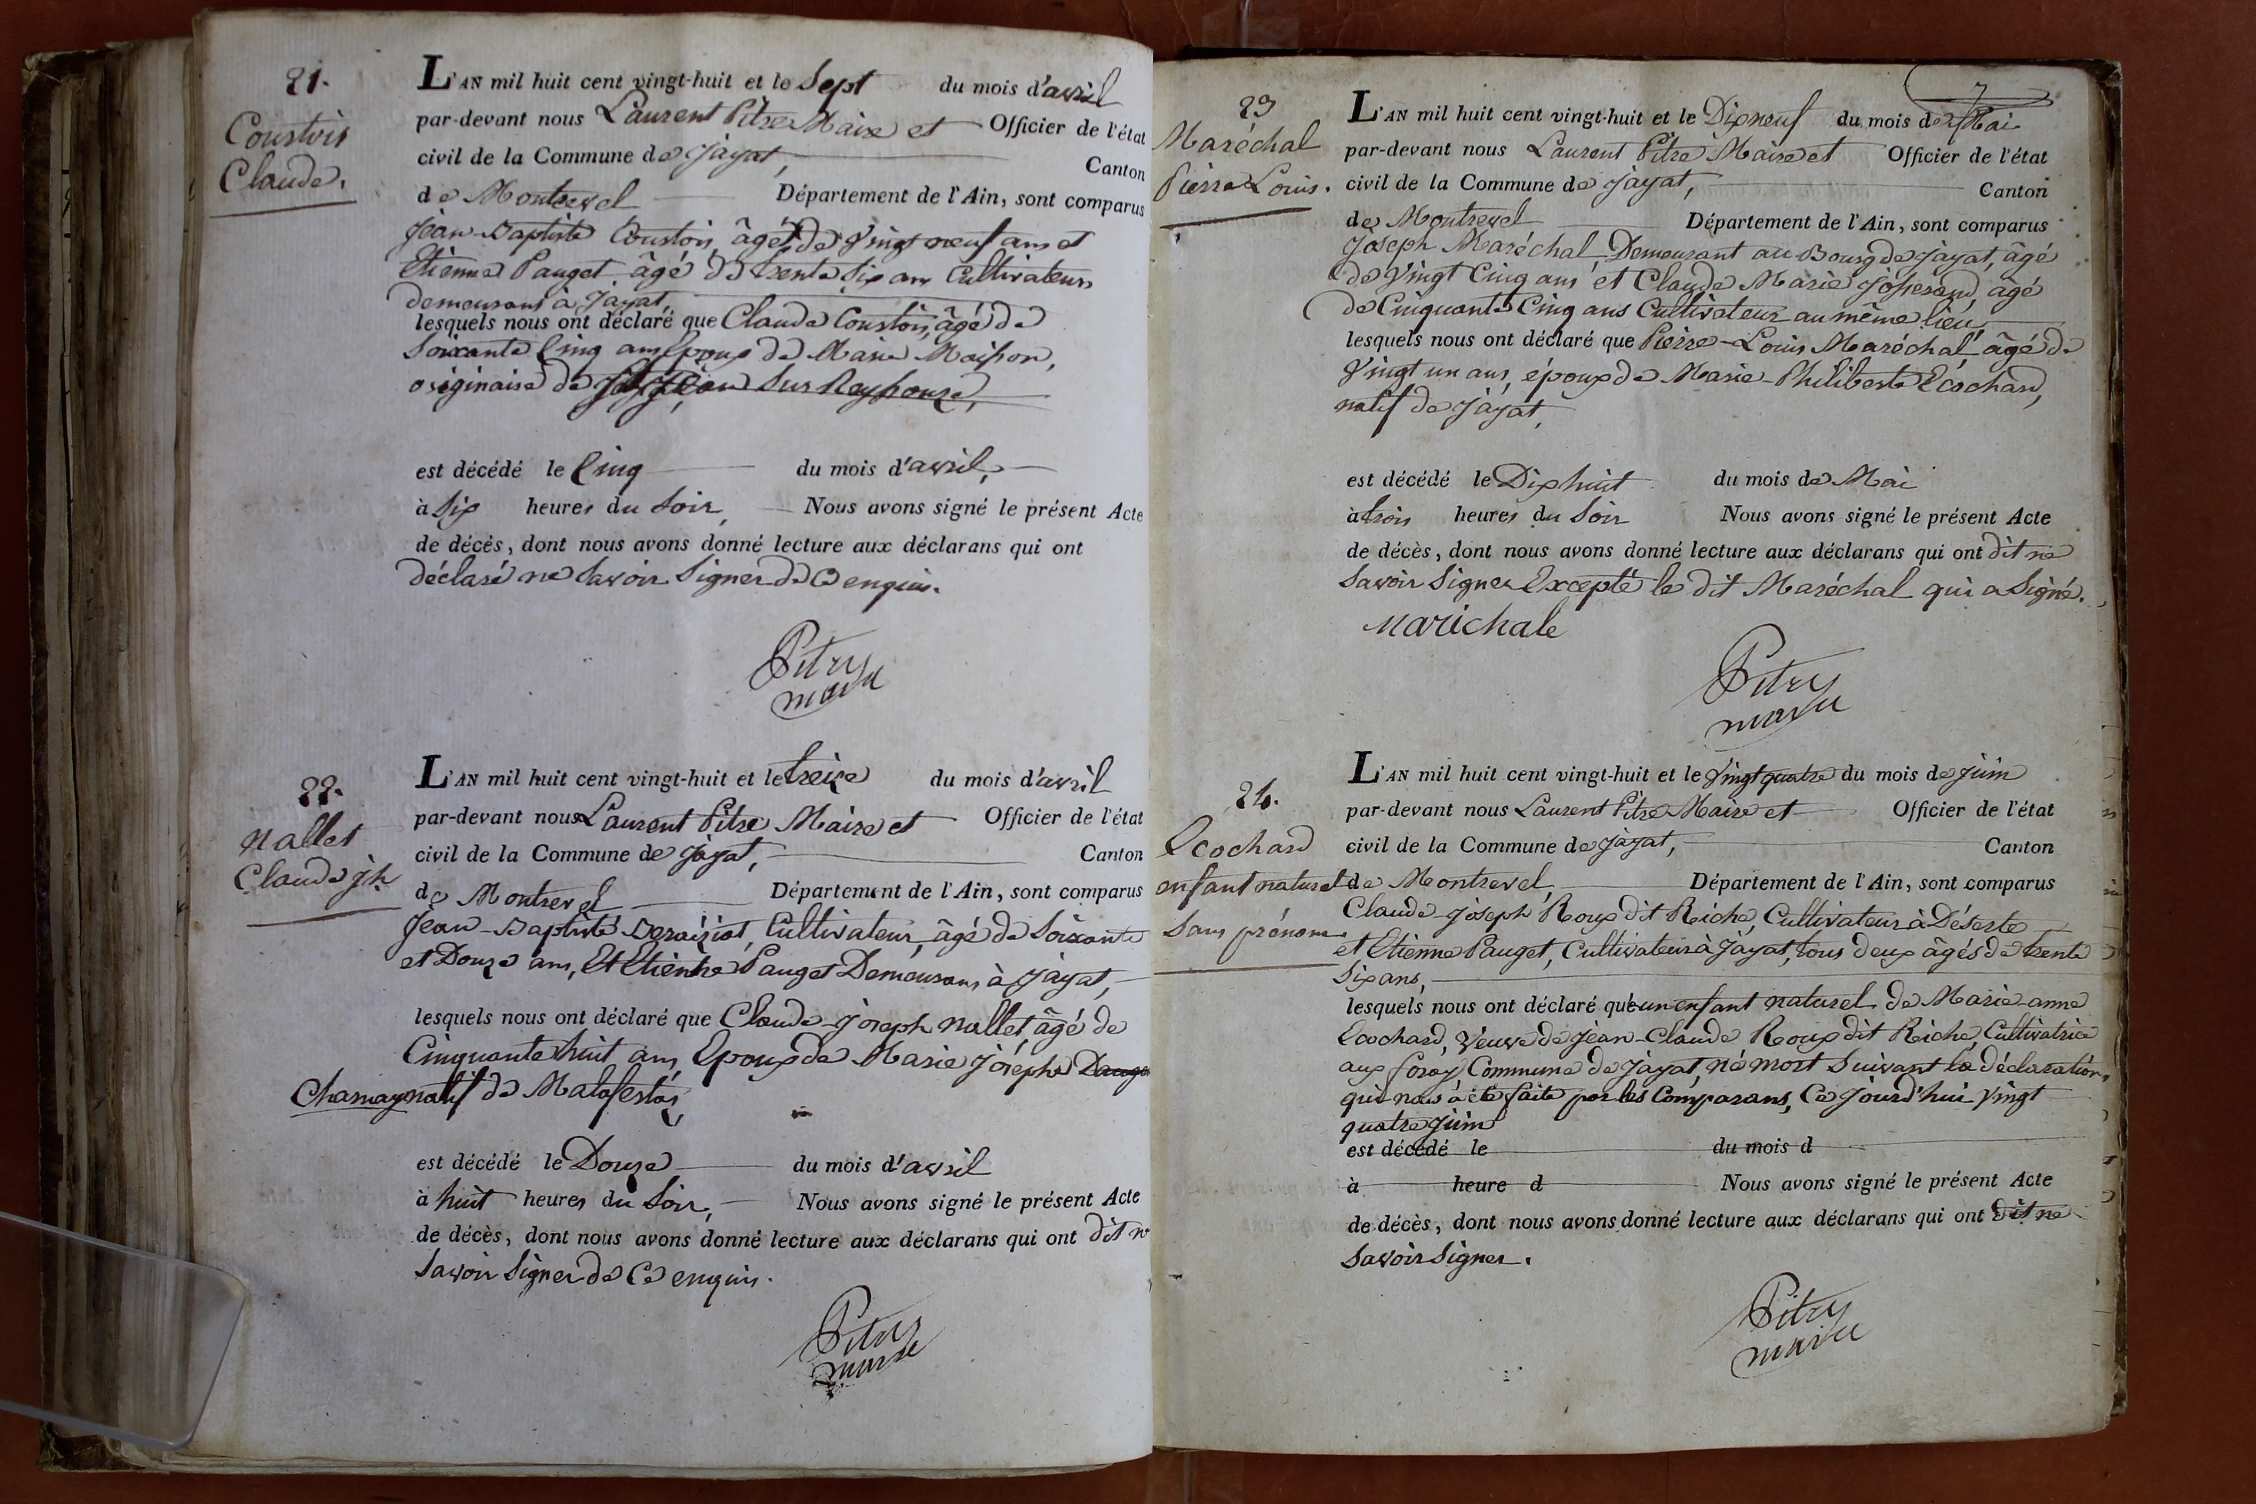 21.
Coustois
Claude.
L'AN mil huit cent vingt-huit et le Sept du mois d'avril
par-devant nous Laurent Pitre Maire et Officier de l'état
civil de la Commune de Jayat, Canton
de Montrevel Département de l'Ain, sont comparus
Jean-Baptiste Coustois, âgé de Vingt neuf ans et
Etienne Pauget âgé de trente Six ans Cultivateurs
demeurans à Jayat,
lesquels nous ont déclaré que Claude Coustois, âgé de
Soixante Cinq ans Epoux de Marie Moisson,
originaire de Jean Sur Reyssouze,
est décédé le Cinq du mois d'avril,
à Six heures du Soir, Nous avons signé le présent Acte
de décès, dont nous avons donné lecture aux déclarans qui ont
déclaré ne Savoir Signer de ce enquis.
Pitre
maire
22.
Nallet
Claude jh
L'AN mil huit cent vingt-huit et le treize du mois d'avril
par-devant nous Laurent Pitre Maire et Officier de l'état
civil de la Commune de Jayat, Canton
de Montrevel Département de l'Ain, sont comparus
Jean-Baptiste Cultivateur, âgé de Soixante
et Douze ans, Et Etienne Pauget Demeurans à Jayat,
lesquels nous ont déclaré que Claude-Joseph Nallet, âgé de
Cinquante huit ans, Epoux de Marie Josephe
Charnay natif de Malafretas,
est décédé le Douze du mois d'avril
à huit heures du Soir, Nous avons signé le présent Acte
de décès, dont nous avons donné lecture aux déclarans qui ont dit ne
Savoir Signer de Ce enquis.
Pitre
maire
7
23
Maréchal
Pierre Louis.
L'AN mil huit cent vingt-huit et le Dix neuf du mois de Mai
par-devant nous Laurent Pitre Maire et Officier de l'état
civil de la Commune de Jayat, Canton
de Montrevel Département de l'Ain, sont comparus
Joseph Maréchal Demeurant au Bourg de Jayat, âgé
de Vingt Cinq ans et Claude Marie Josserand, âgé
de Cinquante Cinq ans Cultivateur au même lieu,
lesquels nous ont déclaré que Pierre-Louis Maréchal âgé de
Vingt un ans, époux de Marie-Philiberte Ecochard,
natif de Jayat,
est décédé le Dix huit du mois de Mai
à trois heures du Soir Nous avons signé le présent Acte
de décès, dont nous avons donné lecture aux déclarans qui ont dit ne
Savoir Signer Excepté le dit Maréchal qui a Signé.
Marichale
Pitre
maire
24.
Ecochard
enfant naturel
Sans prénom
L'AN mil huit cent vingt-huit et le Vingt quatre du mois de Juin
par-devant nous Laurent Pitre Maire et Officier de l'état
civil de la Commune de Jayat, Canton
de Montrevel Département de l'Ain, sont comparus
Claude-Joseph Roux dit Riche, Cultivateur à Déserte
et Etienne Pauget, Cultivateur à Jayat, tous deux âgés de trente
Six ans,
lesquels nous ont déclaré qu'un enfant naturel de Marie-anne
Ecochard, Veuve de Jean-Claude Roux dit Riche, Cultivatrice
aux Commune de Jayat, né mort Suivant la déclaration
qui nous a été faite par les Comparans, Ce Jourd'hui Vingt
quatre Juin
est décédé le du mois d
à heure d Nous avons signé le présent Acte
de décès, dont nous avons donné lecture aux déclarans qui ont dit ne
Savoir Signer.
Pitre
maire